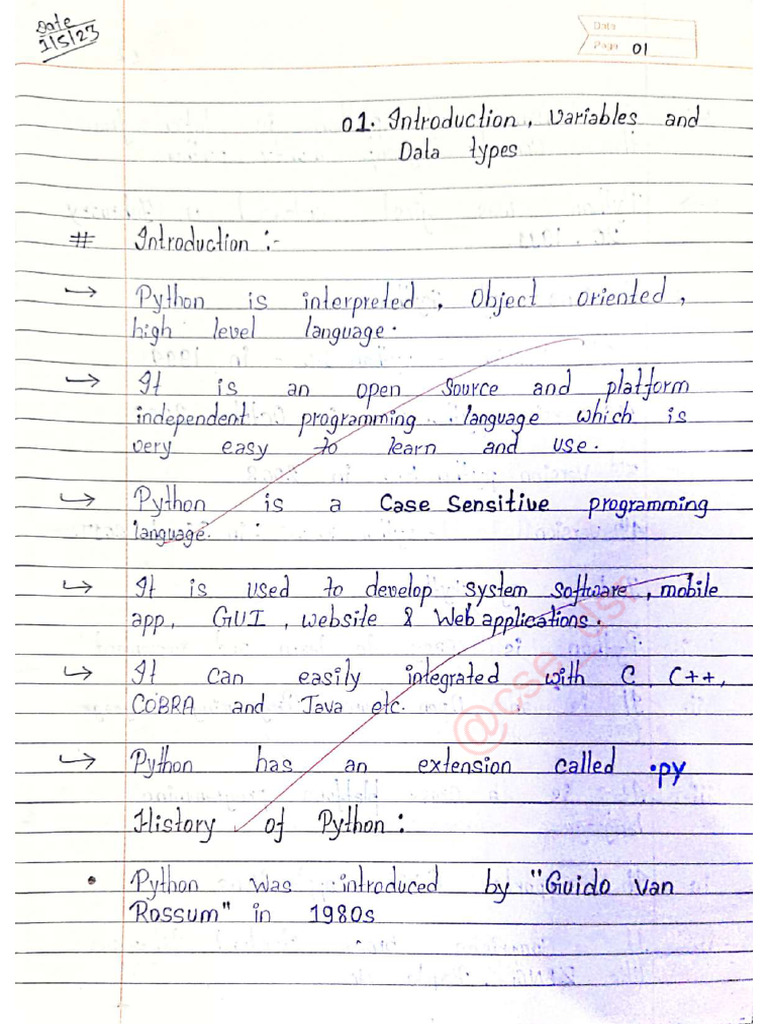 Date
1/5/23
Date
Page 01
01. Introduction, Variables and
Data types
# Introduction :-
→ Python is interpreted, Object oriented,
high level language.
→ It is an open source and platform
independent programming language which is
very easy to learn and use.
→ Python is a Case Sensitive programming
language.
→ It is used to develop system software, mobile
app, GUI, website & Web applications.
→ It can easily integrated with C, C++,
COBRA and Java etc.
→ Python has an extension called .py
History of Python :
• Python was introduced by "Guido Van
Rossum" in 1980s